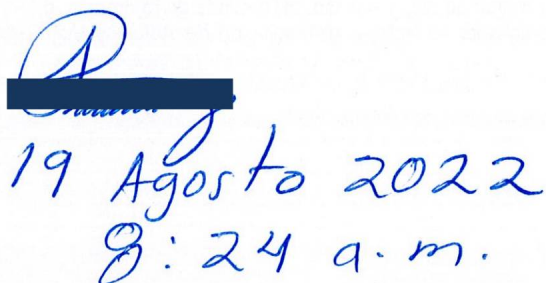 19 Agosto 2022
8:24 a.m.